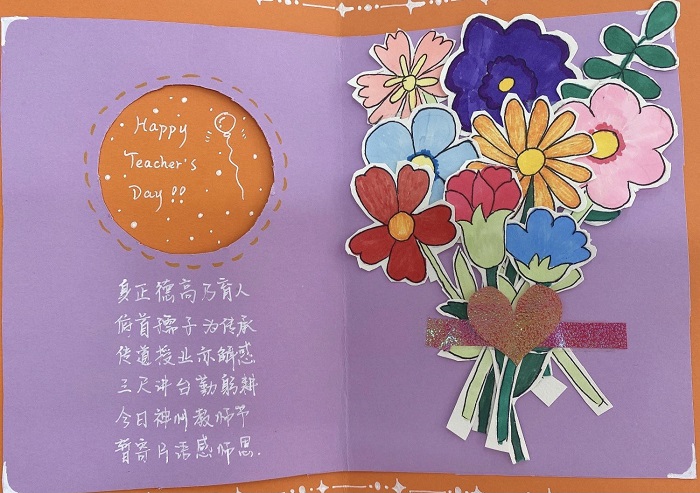 Happy
Teacher's
Day !!
身正德高乃育人
俯首孺子为传承
传道授业亦解惑
三尺讲台勤躬耕
今日神州教师节
暂寄片语感师恩.